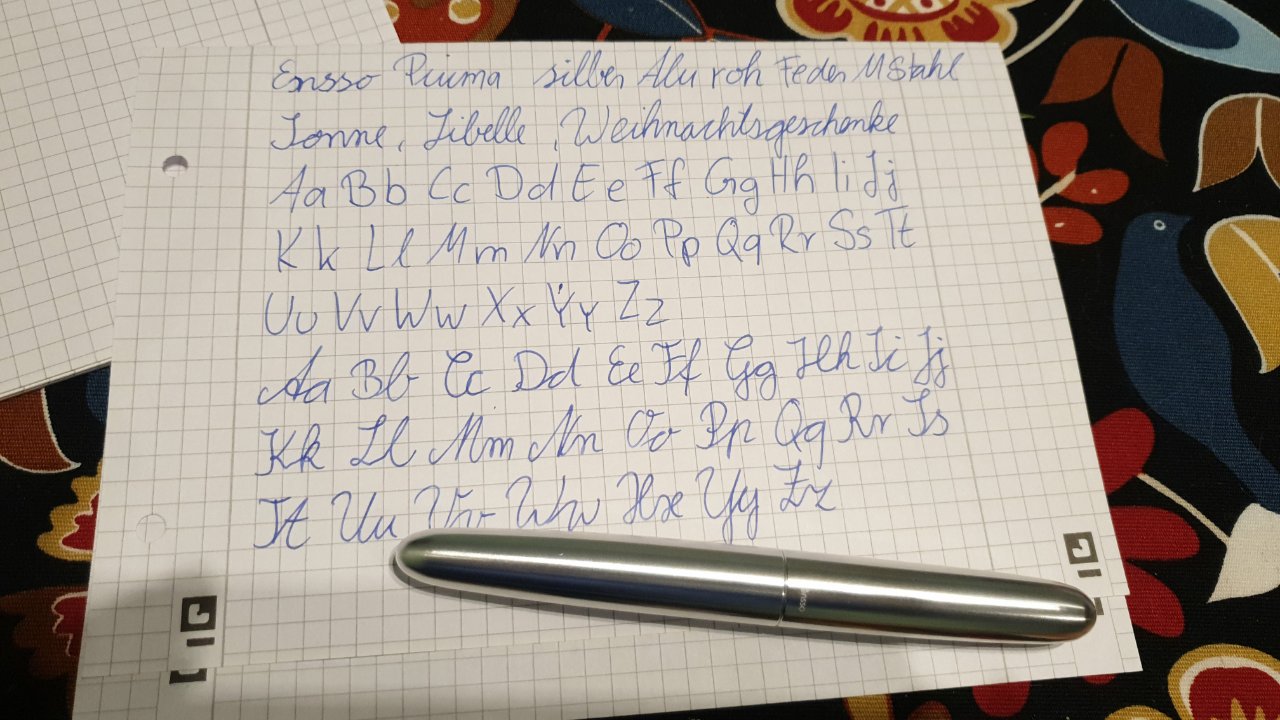 Ensso Piuma silber Alu roh Feder M Stahl
Tonne, Libelle, Weihnachtsgeschenke
Aa Bb Cc Dd Ee Ff Gg Hh Ii Jj
Kk Ll Mm Nn Oo Pp Qq Rr Ss Tt
Uu Vv Ww Xx Yy Zz
Aa Bb Cc Dd Ee Ff Gg Hh Ii Jj
Kk Ll Mm Nn Oo Pp Qq Rr Ss
Tt Uu Vv Ww Xx Yy Zz
ensso